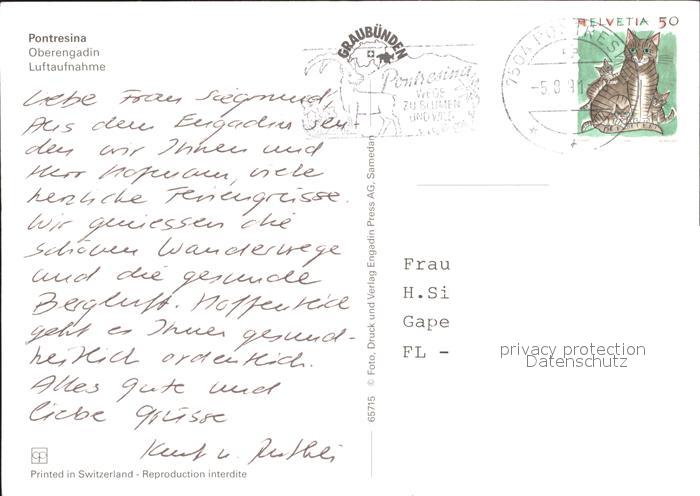 Pontresina
Oberengadin
Luftaufnahme
Liebe Frau Siegmund,
Aus dem Engadin sen-
den wir Ihnen und
Herr Hofmann, viele
herzliche Feriengrüsse.
Wir geniessen die
schönen Wanderwege
und die gesunde
Bergluft. Hoffentlich
geht es Ihnen gesund-
heitlich ordentlich.
Alles Gute und
liebe Grüsse
Kurt u. Ruthli
Printed in Switzerland - Reproduction interdite
65715 © Foto, Druck und Verlag Engadin Press AG, Samedan
GRAUBÜNDEN
Pontresina
WEGE
ZU BLUMEN
UND WILD
7504 PONTRES
-5.8.91
HELVETIA 50
Frau
H.Si
Gape
FL -
privacy protection
Datenschutz